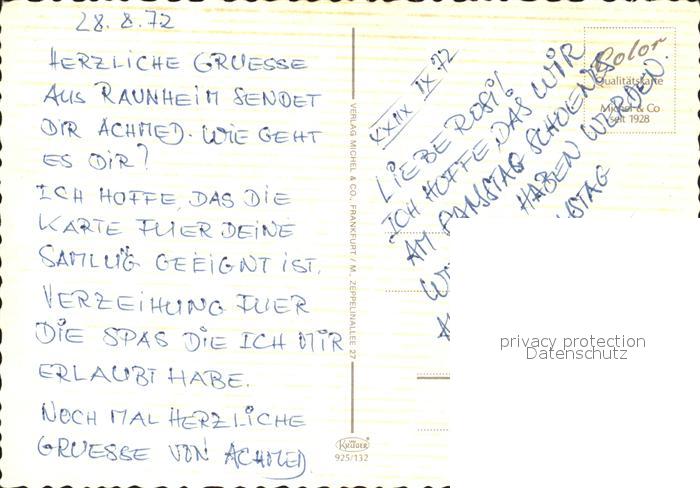 28.8.72
HERZLICHE GRUESSE
AUS RAUNHEIM SENDET
DIR ACHMED. WIE GEHT
ES DIR?
ICH HOFFE, DAS DIE
KARTE FUER DEINE
SAMLUG GEEIGNT IST.
VERZEIHUNG FUER
DIE SPAS DIE ICH MIR
ERLAUBT HABE.
NOCH MAL HERZLICHE
GRUESSE VON ACHMED.
VERLAG MICHEL & CO., FRANKFURT / M., ZEPPELINALLEE 27
KRÜGER
925/132
Color
Qualitätskarte
Michel & Co
seit 1928
XXIIX IX 72
LIEBE ROSI!
ICH HOFFE, DAS WIR
AM SAMSTAG SCHOENES
HABEN WERDEN.
privacy protection
Datenschutz